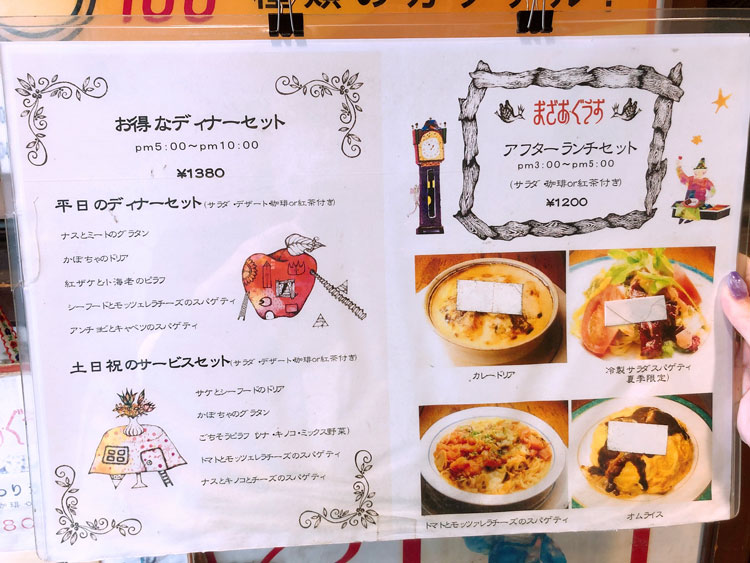 100
種類のカクテル!
お得なディナーセット
pm5:00〜pm10:00
¥1380
平日のディナーセット(サラダ・デザート・珈琲or紅茶付き)
ナスとミートのグラタン
かぼちゃのドリア
紅ザケと小海老のピラフ
シーフードとモッツェレラチーズのスパゲティ
アンチョビとキャベツのスパゲティ
土日祝のサービスセット(サラダ・デザート・珈琲or紅茶付き)
サケとシーフードのドリア
かぼちゃのグラタン
ごちそうピラフ(ツナ・キノコ・ミックス野菜)
トマトとモッツェレラチーズのスパゲティ
ナスとキノコとチーズのスパゲティ
まざあぐうす
アフターランチセット
pm3:00〜pm5:00
(サラダ・珈琲or紅茶付き)
¥1200
カレードリア
冷製サラダスパゲティ
夏季限定)
トマトとモッツァレラチーズのスパゲティ
オムライス